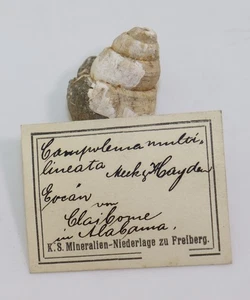 Campeloma multi-
lineata Meek & Hayden
Eocän
von
Claiborne
in Alabama.
K. S. Mineralien-Niederlage zu Freiberg.